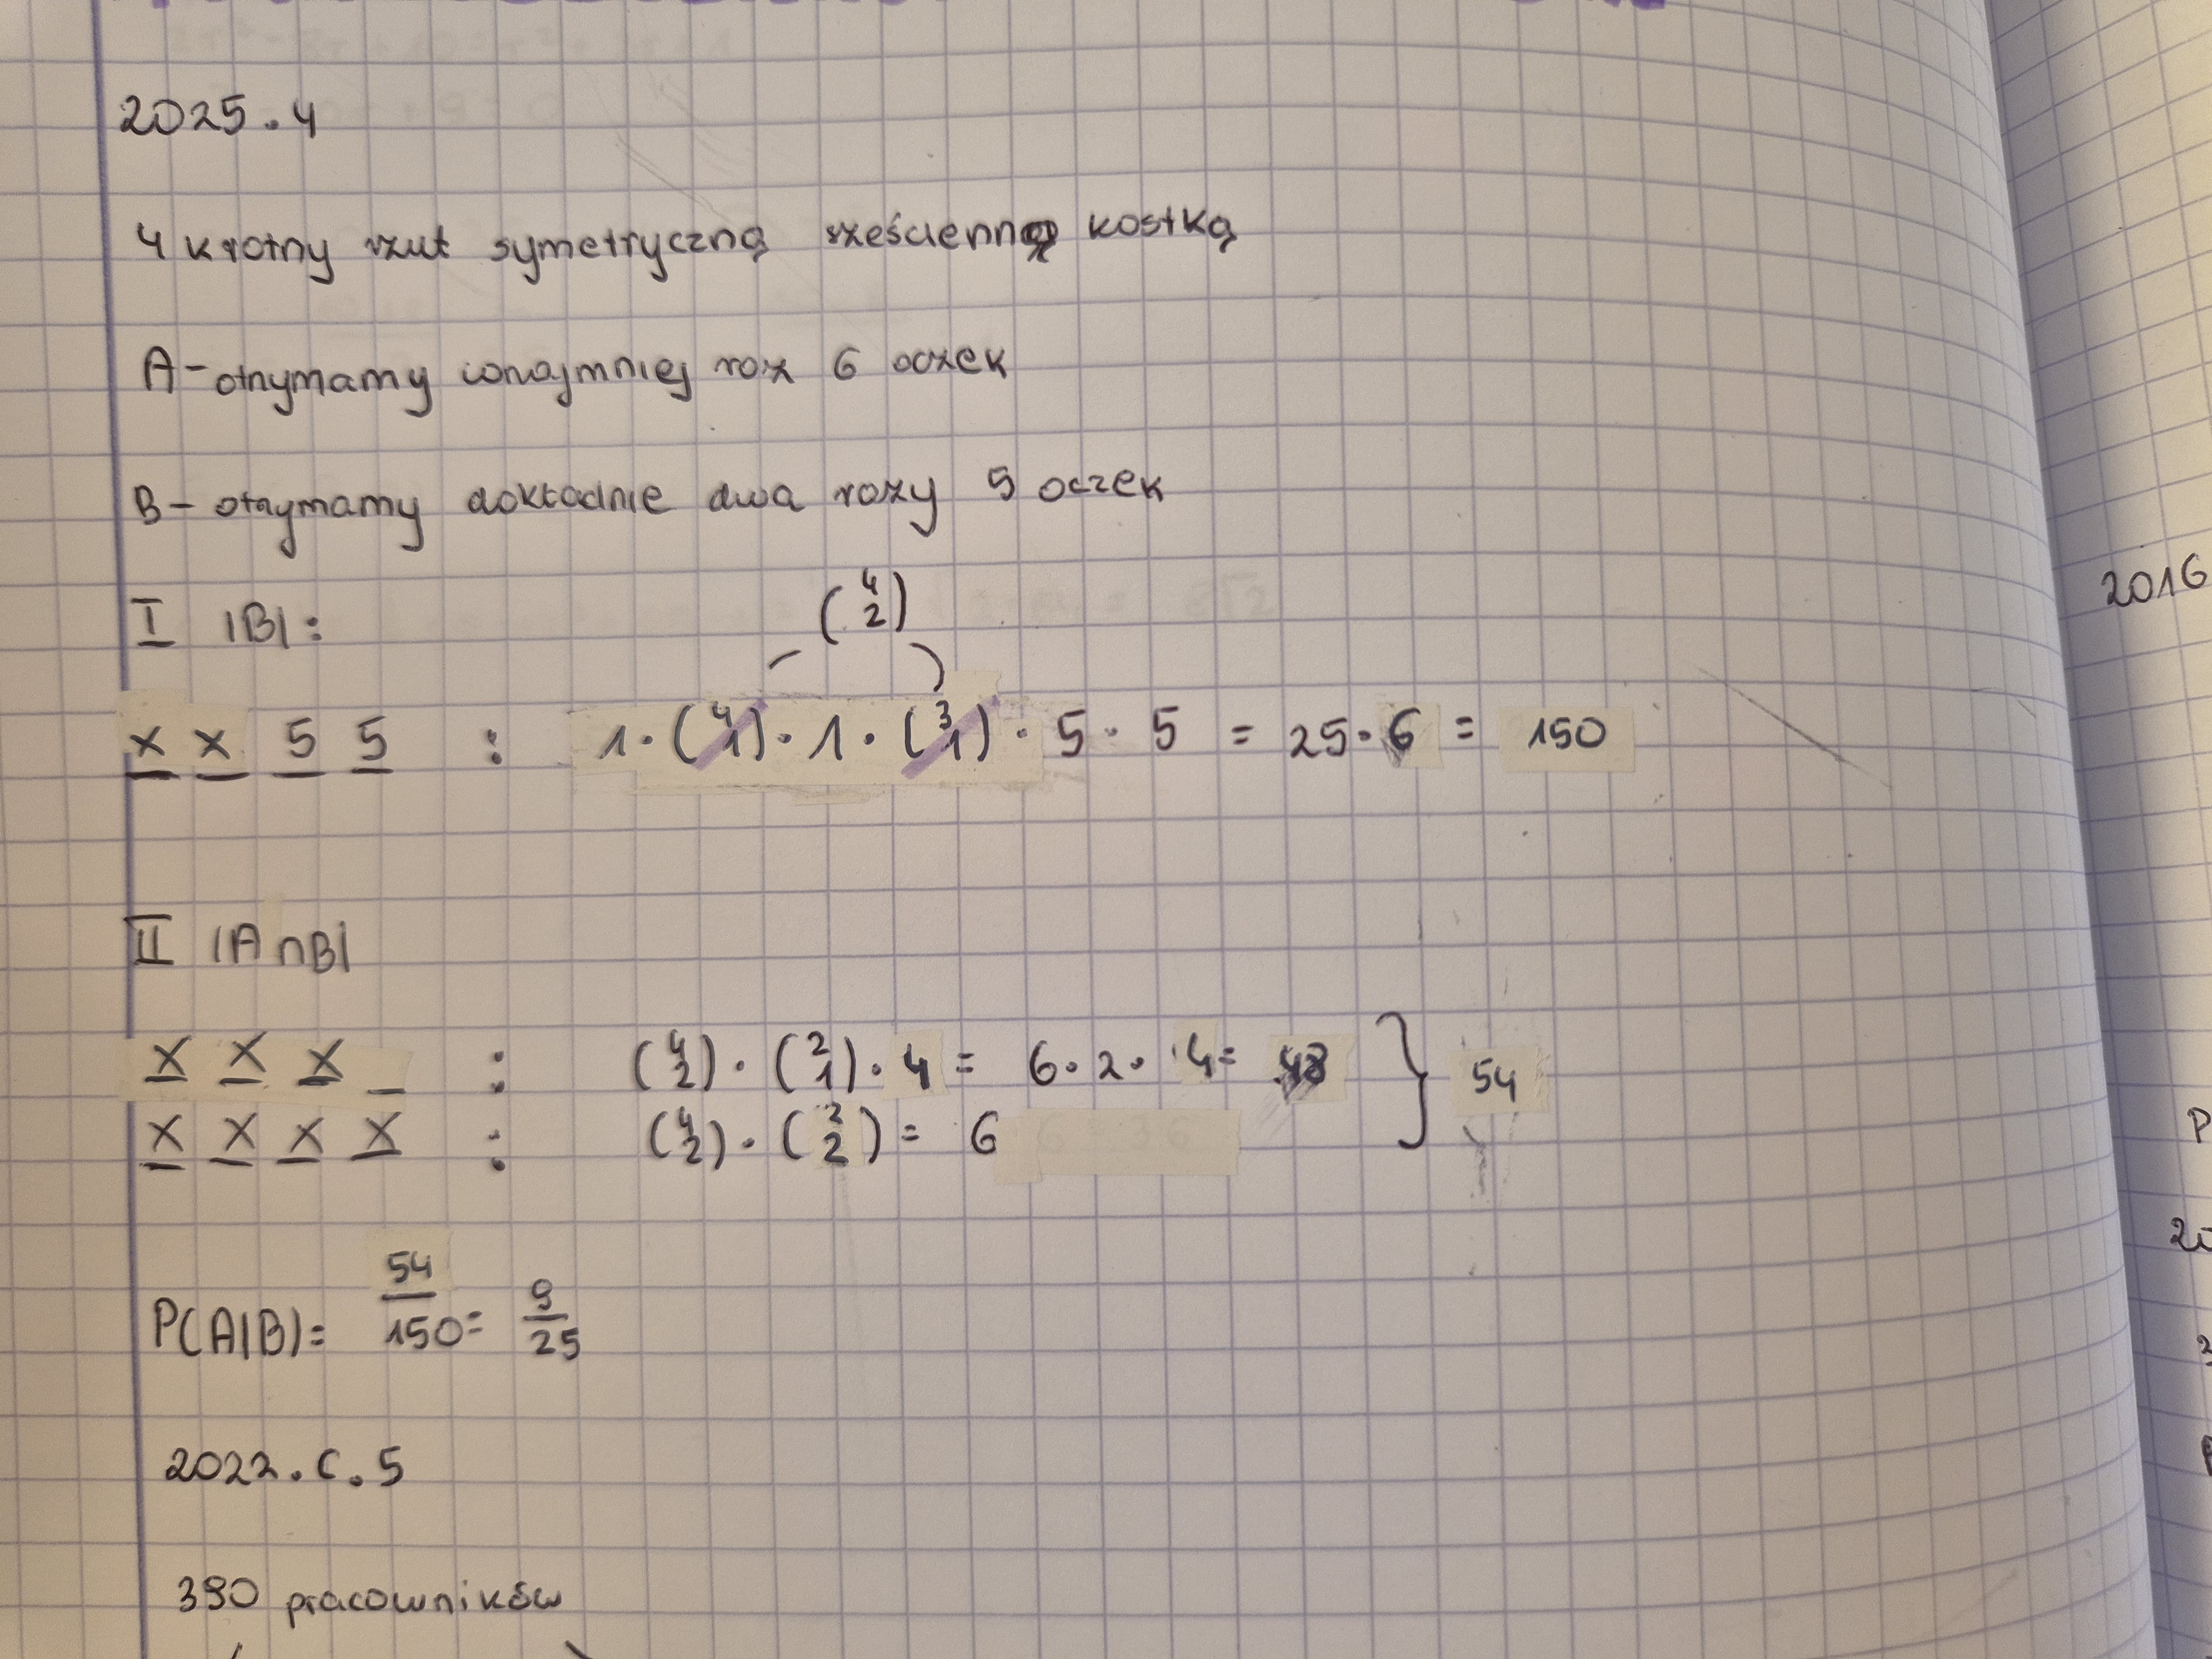 2025.4
4 krotny rzut symetryczną sześcienną kostką
A- otrzymamy conajmniej raz 6 oczek
B- otrzymamy dokładnie dwa razy 5 oczek
I |B|:
(4 2)
x x 5 5 : 1·(4 1)·1·(3 1)·5·5 = 25·6 = 150
2016
II |A∩B|
X X X _ : (4 2)·(2 1)·4 = 6·2·4= 48
} 54
X X X X : (4 2)·(2 2) = 6
P(A|B)= 54/150 = 9/25
2022.C.5
390 pracowników